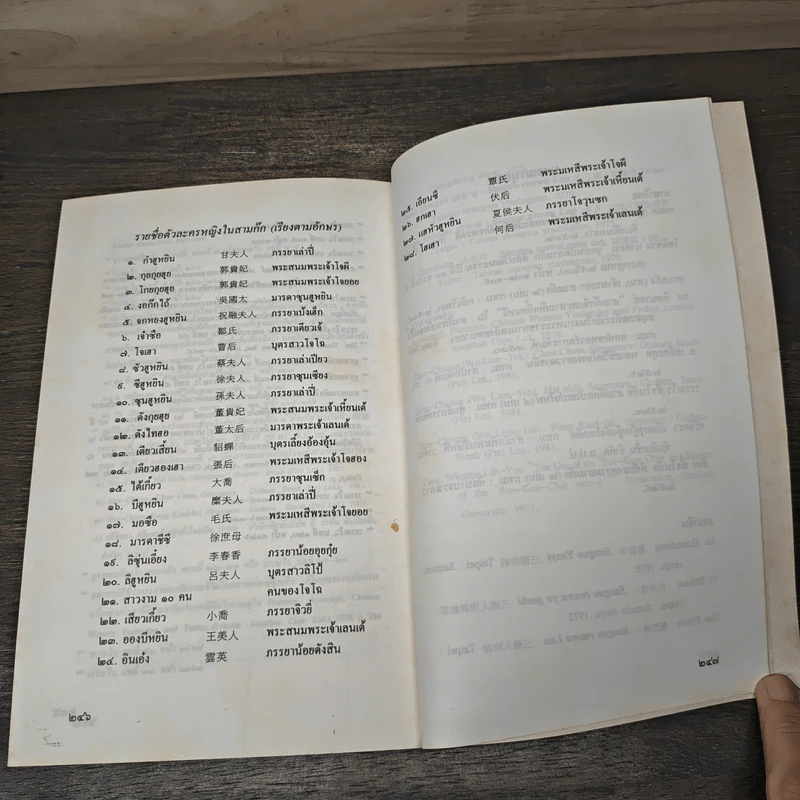 รายชื่อตัวละครหญิงในสามก๊ก (เรียงตามอักษร)
๑. กำฮูหยิน 甘夫人 ภรรยาเล่าปี่
๒. กุยกุยฮุย 郭貴妃 พระสนมพระเจ้าโจผี
๓. โกยกุยฮุย 郭貴妃 พระสนมพระเจ้าโจยอย
๔. งอก๊กไถ้ 吳國太 มารดาซุนฮูหยิน
๕. จกหยงฮูหยิน 祝融夫人 ภรรยาเบ้งเฮ็ก
๖. เจ๋าซือ 鄒氏 ภรรยาเตียวเจ้
๗. โจเฮา 曹后 บุตรสาวโจโฉ
๘. ชัวฮูหยิน 蔡夫人 ภรรยาเล่าเปียว
๙. ชีฮูหยิน 徐夫人 ภรรยาซุนเซียง
๑๐. ซุนฮูหยิน 孫夫人 ภรรยาเล่าปี่
๑๑. ตังกุยฮุย 董貴妃 พระสนมพระเจ้าเหี้ยนเต้
๑๒. ตังไทฮอ 董太后 มารดาพระเจ้าเลนเต้
๑๓. เตียวเสี้ยน 貂蟬 บุตรเลี้ยงอ้องอุ้น
๑๔. เตียวฮองเฮา 張后 พระมเหสีพระเจ้าโจฮอง
๑๕. ไต้เกี้ยว 大喬 ภรรยาซุนเซ็ก
๑๖. บีฮูหยิน 糜夫人 ภรรยาเล่าปี่
๑๗. มอซือ 毛氏 พระมเหสีพระเจ้าโจยอย
๑๘. มารดาชีซี 徐庶母
๑๙. ลิซุ่นเฮี้ยง 李春香 ภรรยาน้อยอุยกุ๋ย
๒๐. ลิฮูหยิน 呂夫人 บุตรสาวลิโป้
๒๑. สาวงาม ๑๐ คน คนของโจโฉ
๒๒. เสียวเกี้ยว 小喬 ภรรยาจิวยี่
๒๓. อองบีหยิน 王美人 พระสนมพระเจ้าเลนเต้
๒๔. อินเอ๋ง 雲英 ภรรยาน้อยตังสิน
๒๔๖
๒๕. เอียนซี 甄氏 พระมเหสีพระเจ้าโจผี
๒๖. ฮกเฮา 伏后 พระมเหสีพระเจ้าเหี้ยนเต้
๒๗. แฮหัวฮูหยิน 夏侯夫人 ภรรยาโจวุนซก
๒๘. โฮเฮา 何后 พระมเหสีพระเจ้าเลนเต้
๒๔๗